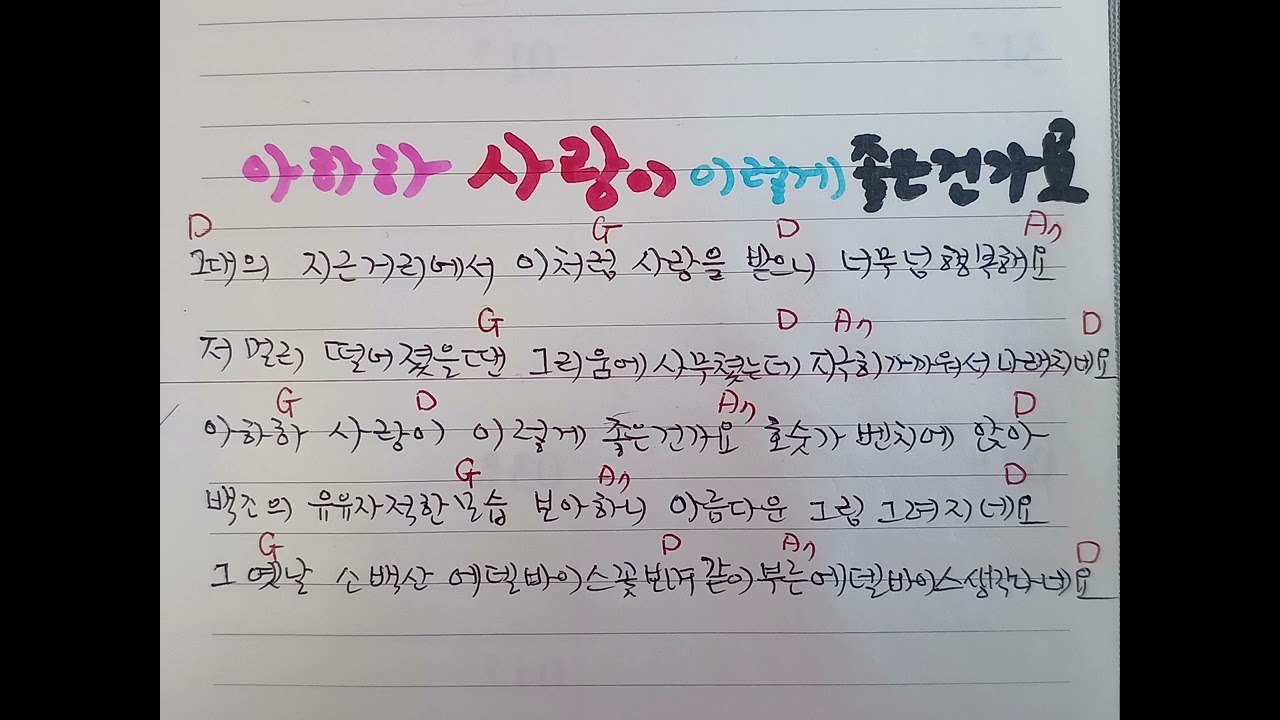 아하하 사랑이 이렇게 좋은건가요
D G D A7
그대의 지근거리에서 이처럼 사랑을 받으니 너무넘 행복해요
G D A7 D
저 멀리 떨어졌을땐 그리움에 사무쳤는데 지극히 가까워서 나래치네요
G D A7 D
아하하 사랑이 이렇게 좋은건가요 호숫가 벤치에 앉아
G A7 D
백조의 유유자적한 모습 보아하니 아름다운 그림 그려지네요
G D A7 D
그 옛날 소백산 에델바이스꽃 보며 같이 부른 에델바이스 생각나네요